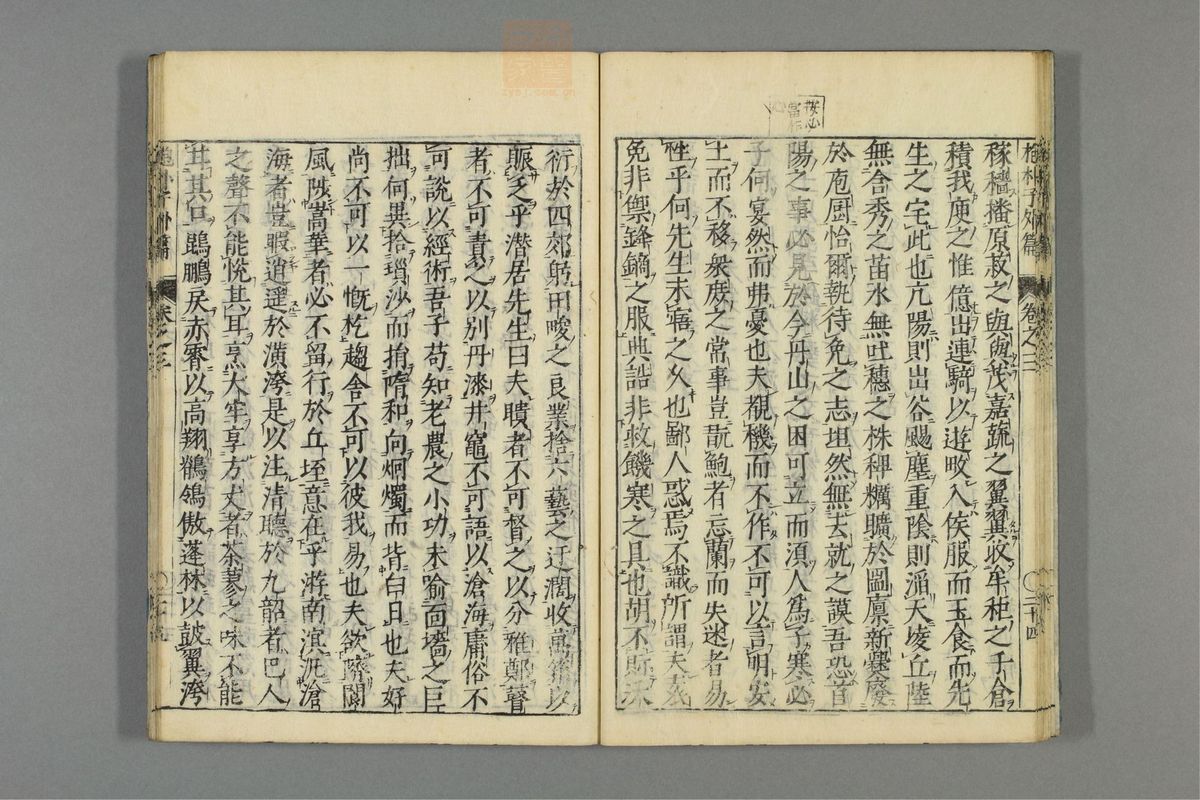 抱朴子外篇 卷之三 〇二十四
稼穡播原菽之與與茂嘉蔬之翼翼收牟秬之千倉
積我庾之惟億出連騎以遊畋入侯服而玉食而先
生之宅此也亢陽則出谷颺塵重陰則滔天凌丘陸
無含秀之苗水無吐穗之株稗糲曠於圖廩新爨廢
於庖厨怡爾執待免之志坦然無去就之謨吾恐首
陽之事必見於今丹山之困可立而須人爲子寒必
子何宴然而弗憂也夫覩機而不作不可以言明安
土而不移衆庶之常事豈翫鮑者忘蘭而失迷者易
性乎何先生未寤之久也鄙人惑焉不識所謂夫袞
冕非禦鋒鏑之服典誥非救饑寒之具也胡不
衍於四郊躬田畯之良業捨六藝之迂濶收萬箱以
賑乏乎潛居先生曰夫聵者不可督之以分雅鄭瞽
者不可責之以別丹漆井竈不可語以滄海庸俗不
可説以經術吾子苟知老農之小功未喻面墻之巨
拙何異拾瑣沙而捐隋和向炯燭而背白日也夫好
尚不可以一慨杚趨舍不可以彼我易也夫欲隮閬
風陟嵩華者必不留行於丘垤意在乎游南溟汎滄
海者豈暇逍遥於潢洿是以注清聽於九韶者巴人
之聲不能悅其耳烹大牢享方丈者荼蓼之味不能
甘其口鵾鵬戾赤霄以高翔鶺鴒傲蓬林以鼓翼洿
抱朴子外篇 卷之三